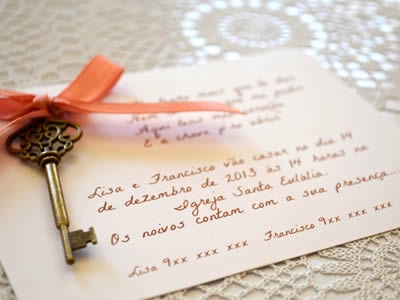 mais que te dei
Nem
Aqui tens meu coração
E a chave p'ro abrir
Lisa e Francisco vão casar no dia 14
de dezembro de 2013 às 14 horas na
Igreja Santa Eulália.
Os noivos contam com a sua presença...
Lisa 9xx xxx xxx Francisco 9xx xxx xxx